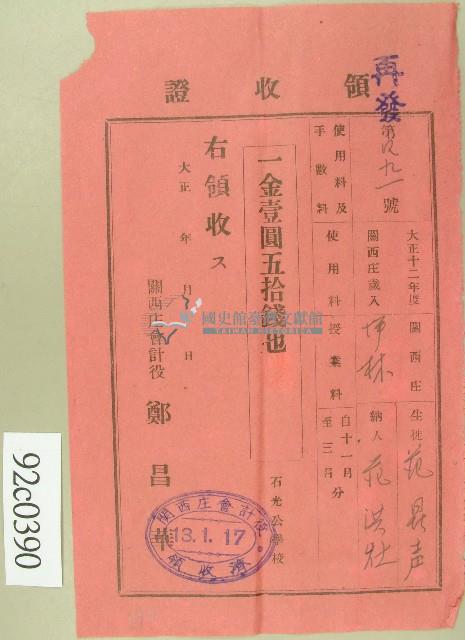 再發
領收證
第四九一號
大正十二年度 關西庄
關西庄歲入
坪林
生徒 范 声
納人 范洪壮
使用料及手數料 使用料 授業料 自十一月至三月分
一金壹圓五拾錢也
石光公學校
右領收ス
大正 年 月 日
關西庄會計役 鄭昌華
關西庄會計役
13.1.17
領收濟
國史館臺灣文獻館
TAIWAN HISTORICA
92c0390